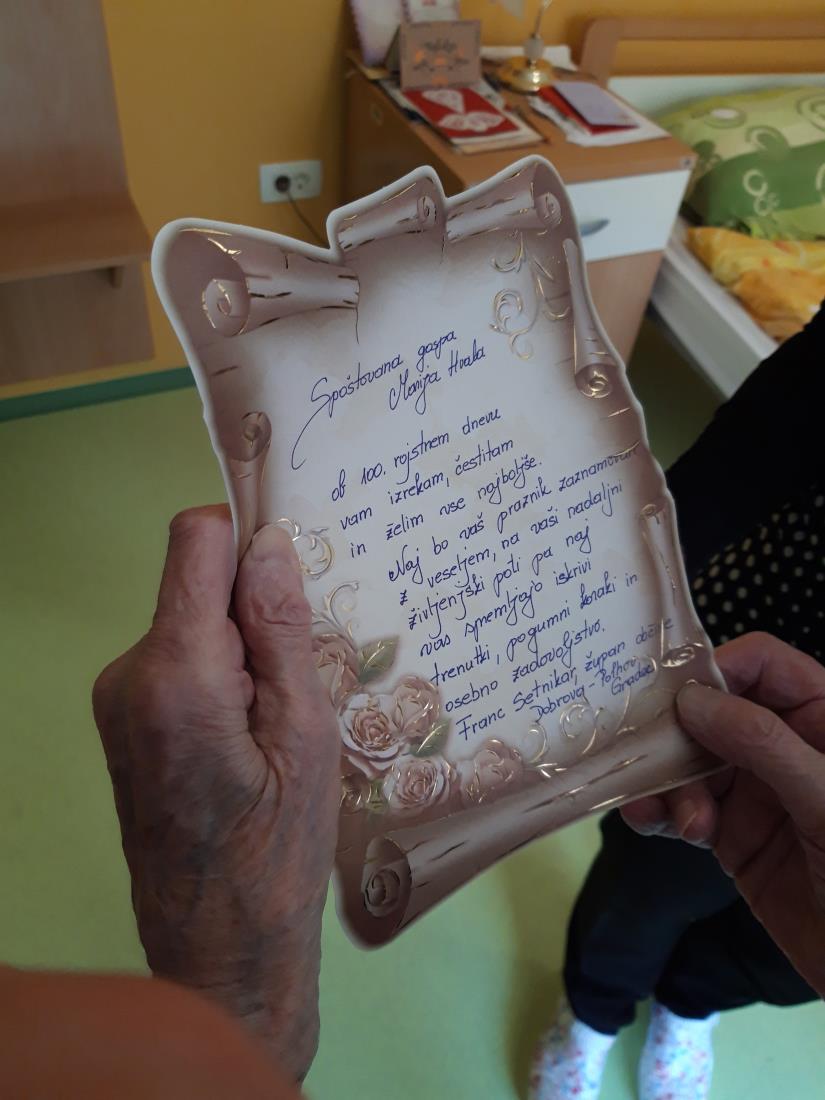 Spoštovana gospa
Marija Hvala
ob 100. rojstnem dnevu
vam izrekam, čestitam
in želim vse najboljše.
Naj bo vaš praznik zaznamovan
z veseljem, na vaši nadaljni
življenjski poti pa naj
vas spremljajo iskrivi
trenutki, pogumni koraki in
osebno zadovoljstvo.
Franc Setnikar, župan občine
Dobrova - Polhov
Gradec